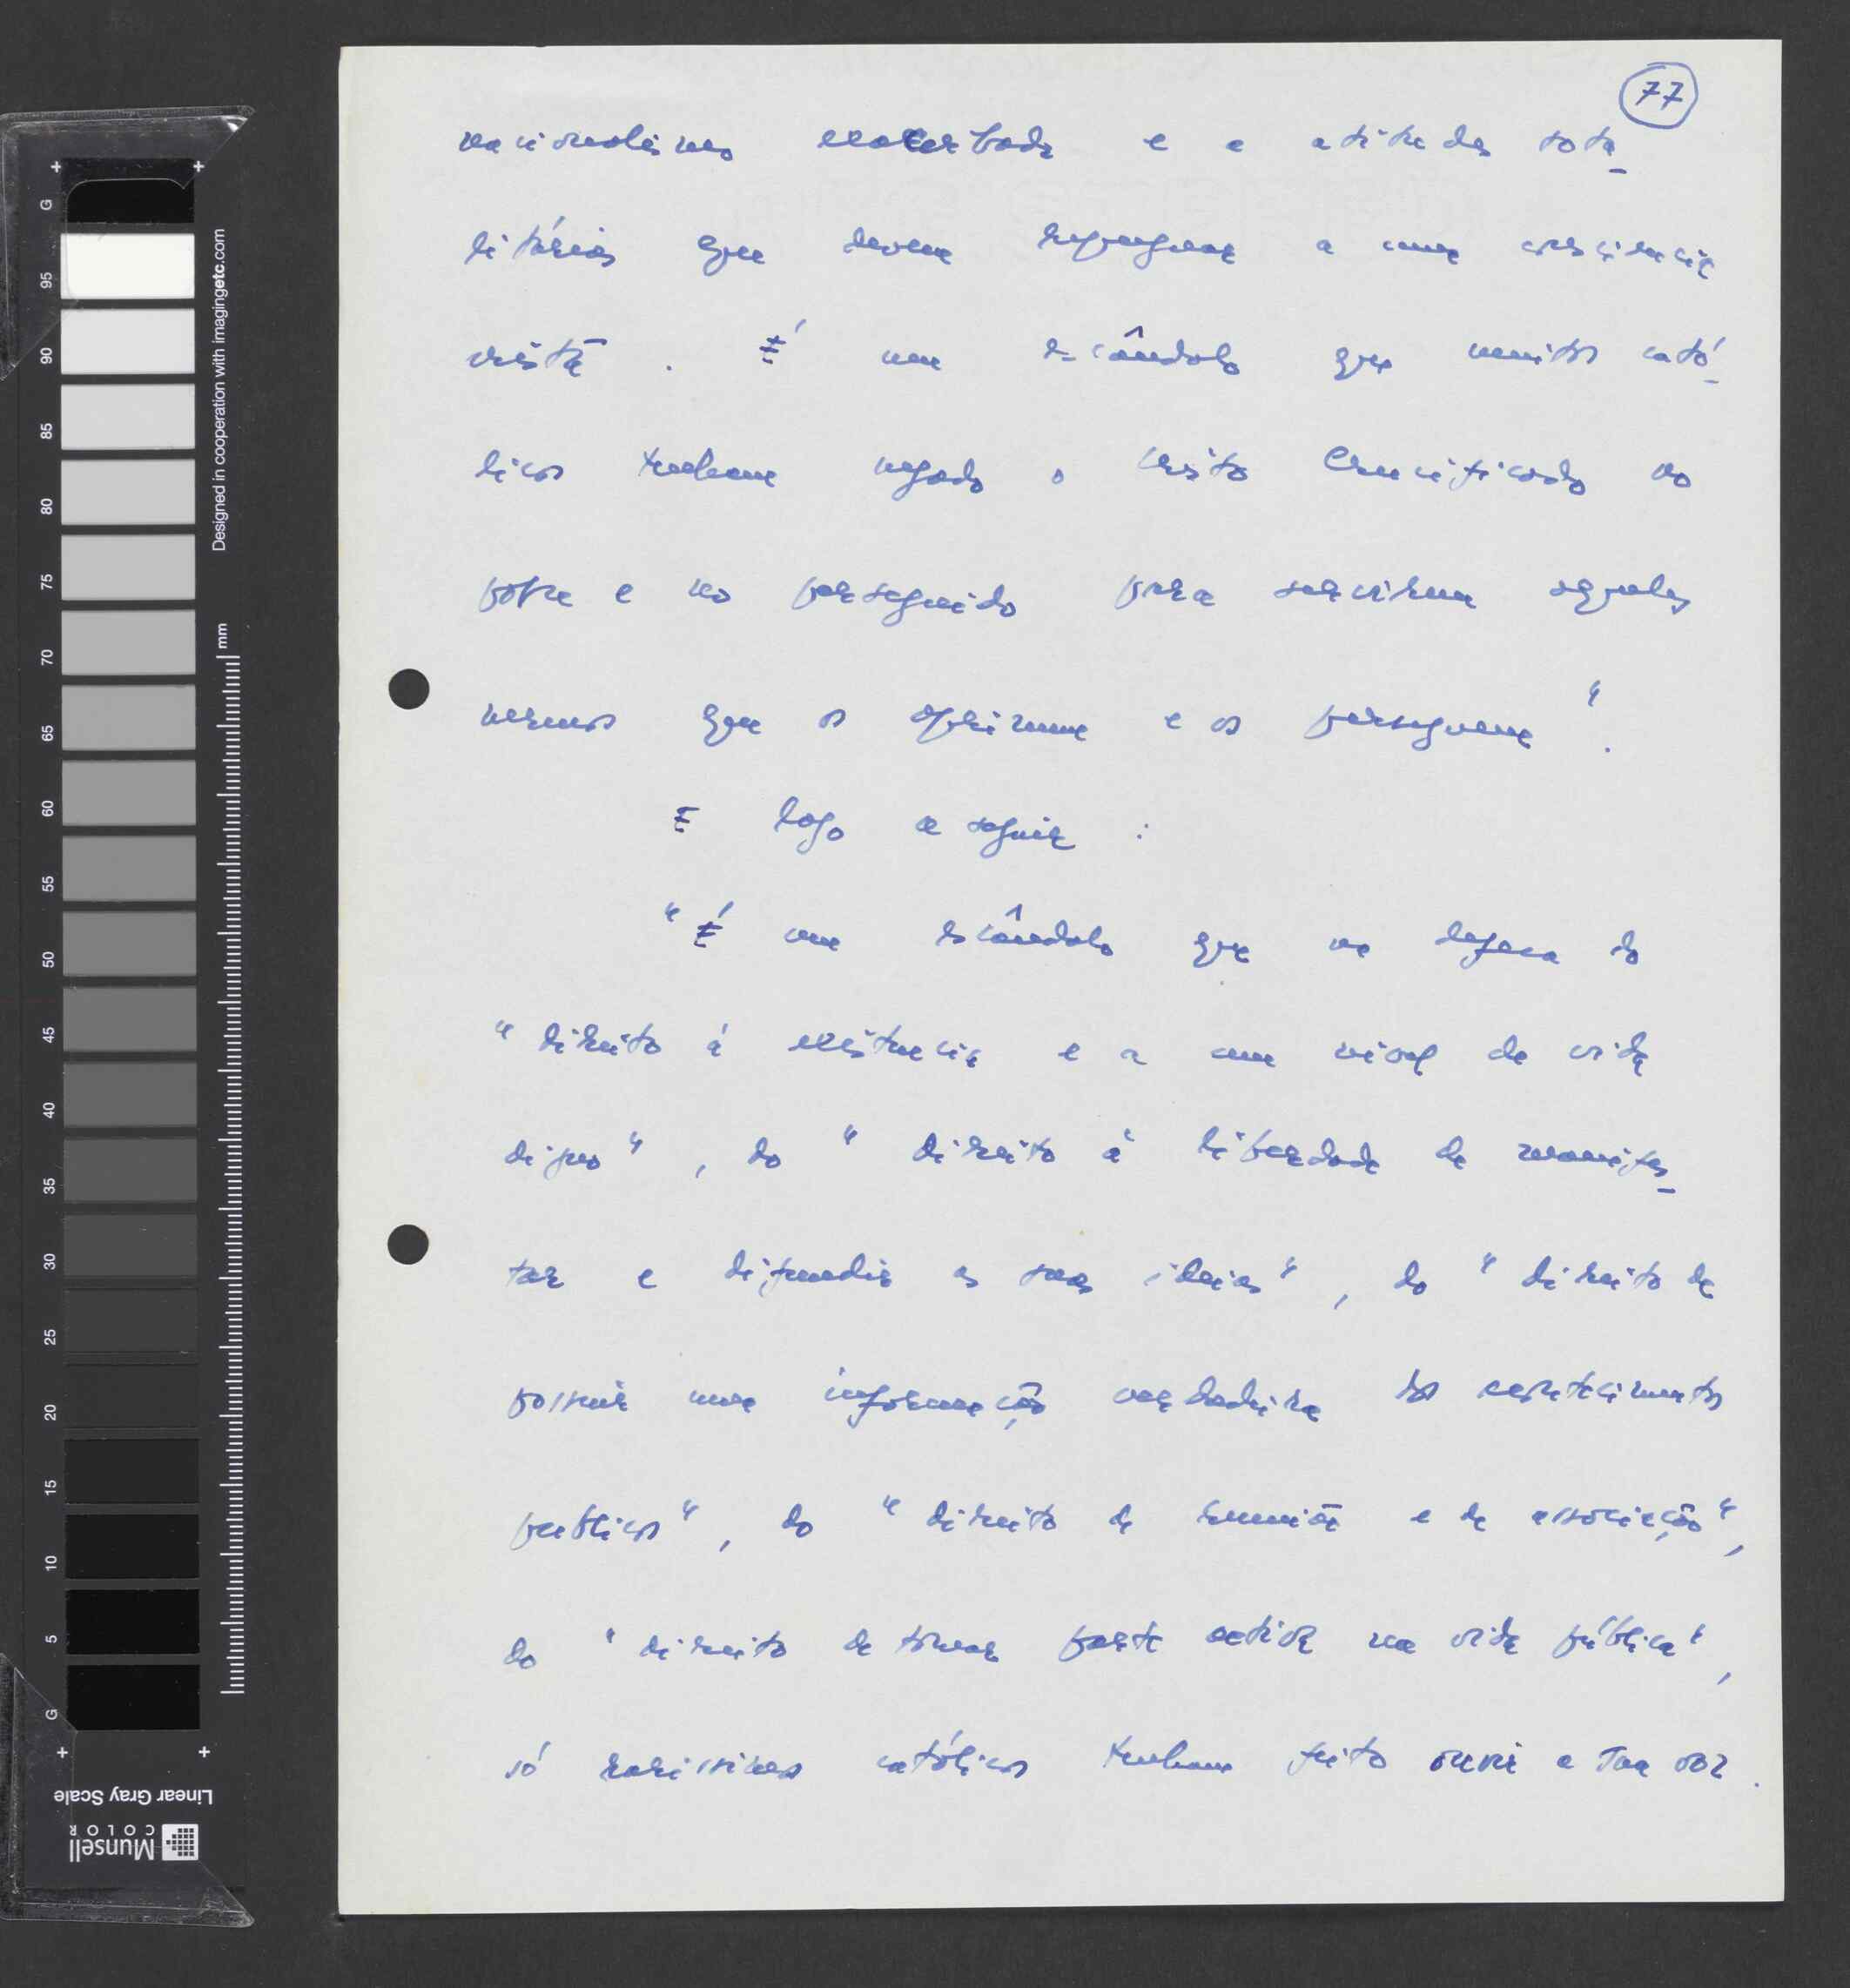 77
nacionalismo exacerbado e a atitudes tota_
litárias que devem repugnar a uma consciência
cristã. É um escândalo que muitos cató_
licos tenham negado o Cristo Crucificado no
pobre e no perseguido para servirem aqueles
mesmos que os oprimem e os perseguem".
E logo a seguir :
"É um escândalo que na defesa do
"direito à existência e a um nível de vida
digno", do "direito à liberdade de manifes_
tar e difundir as suas ideias", do "direito de
possuir uma informação verdadeira dos acontecimentos
publicos", do "direito de reunião e de associação",
do "direito de tomar parte activa na vida pública",
só raríssimos católicos tenham feito ouvir a sua voz.
Designed in cooperation with imagingetc.com
mm
G
95
90
85
80
75
70
65
60
55
50
45
40
35
30
25
20
15
10
5
G
Linear Gray Scale
Munsell
COLOR